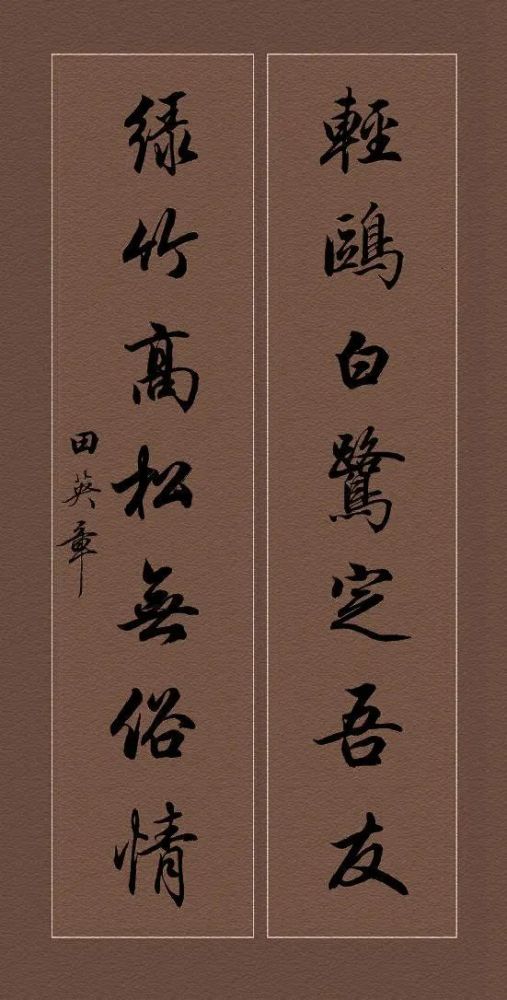 輕鷗白鷺定吾友
綠竹高松無俗情
田英章